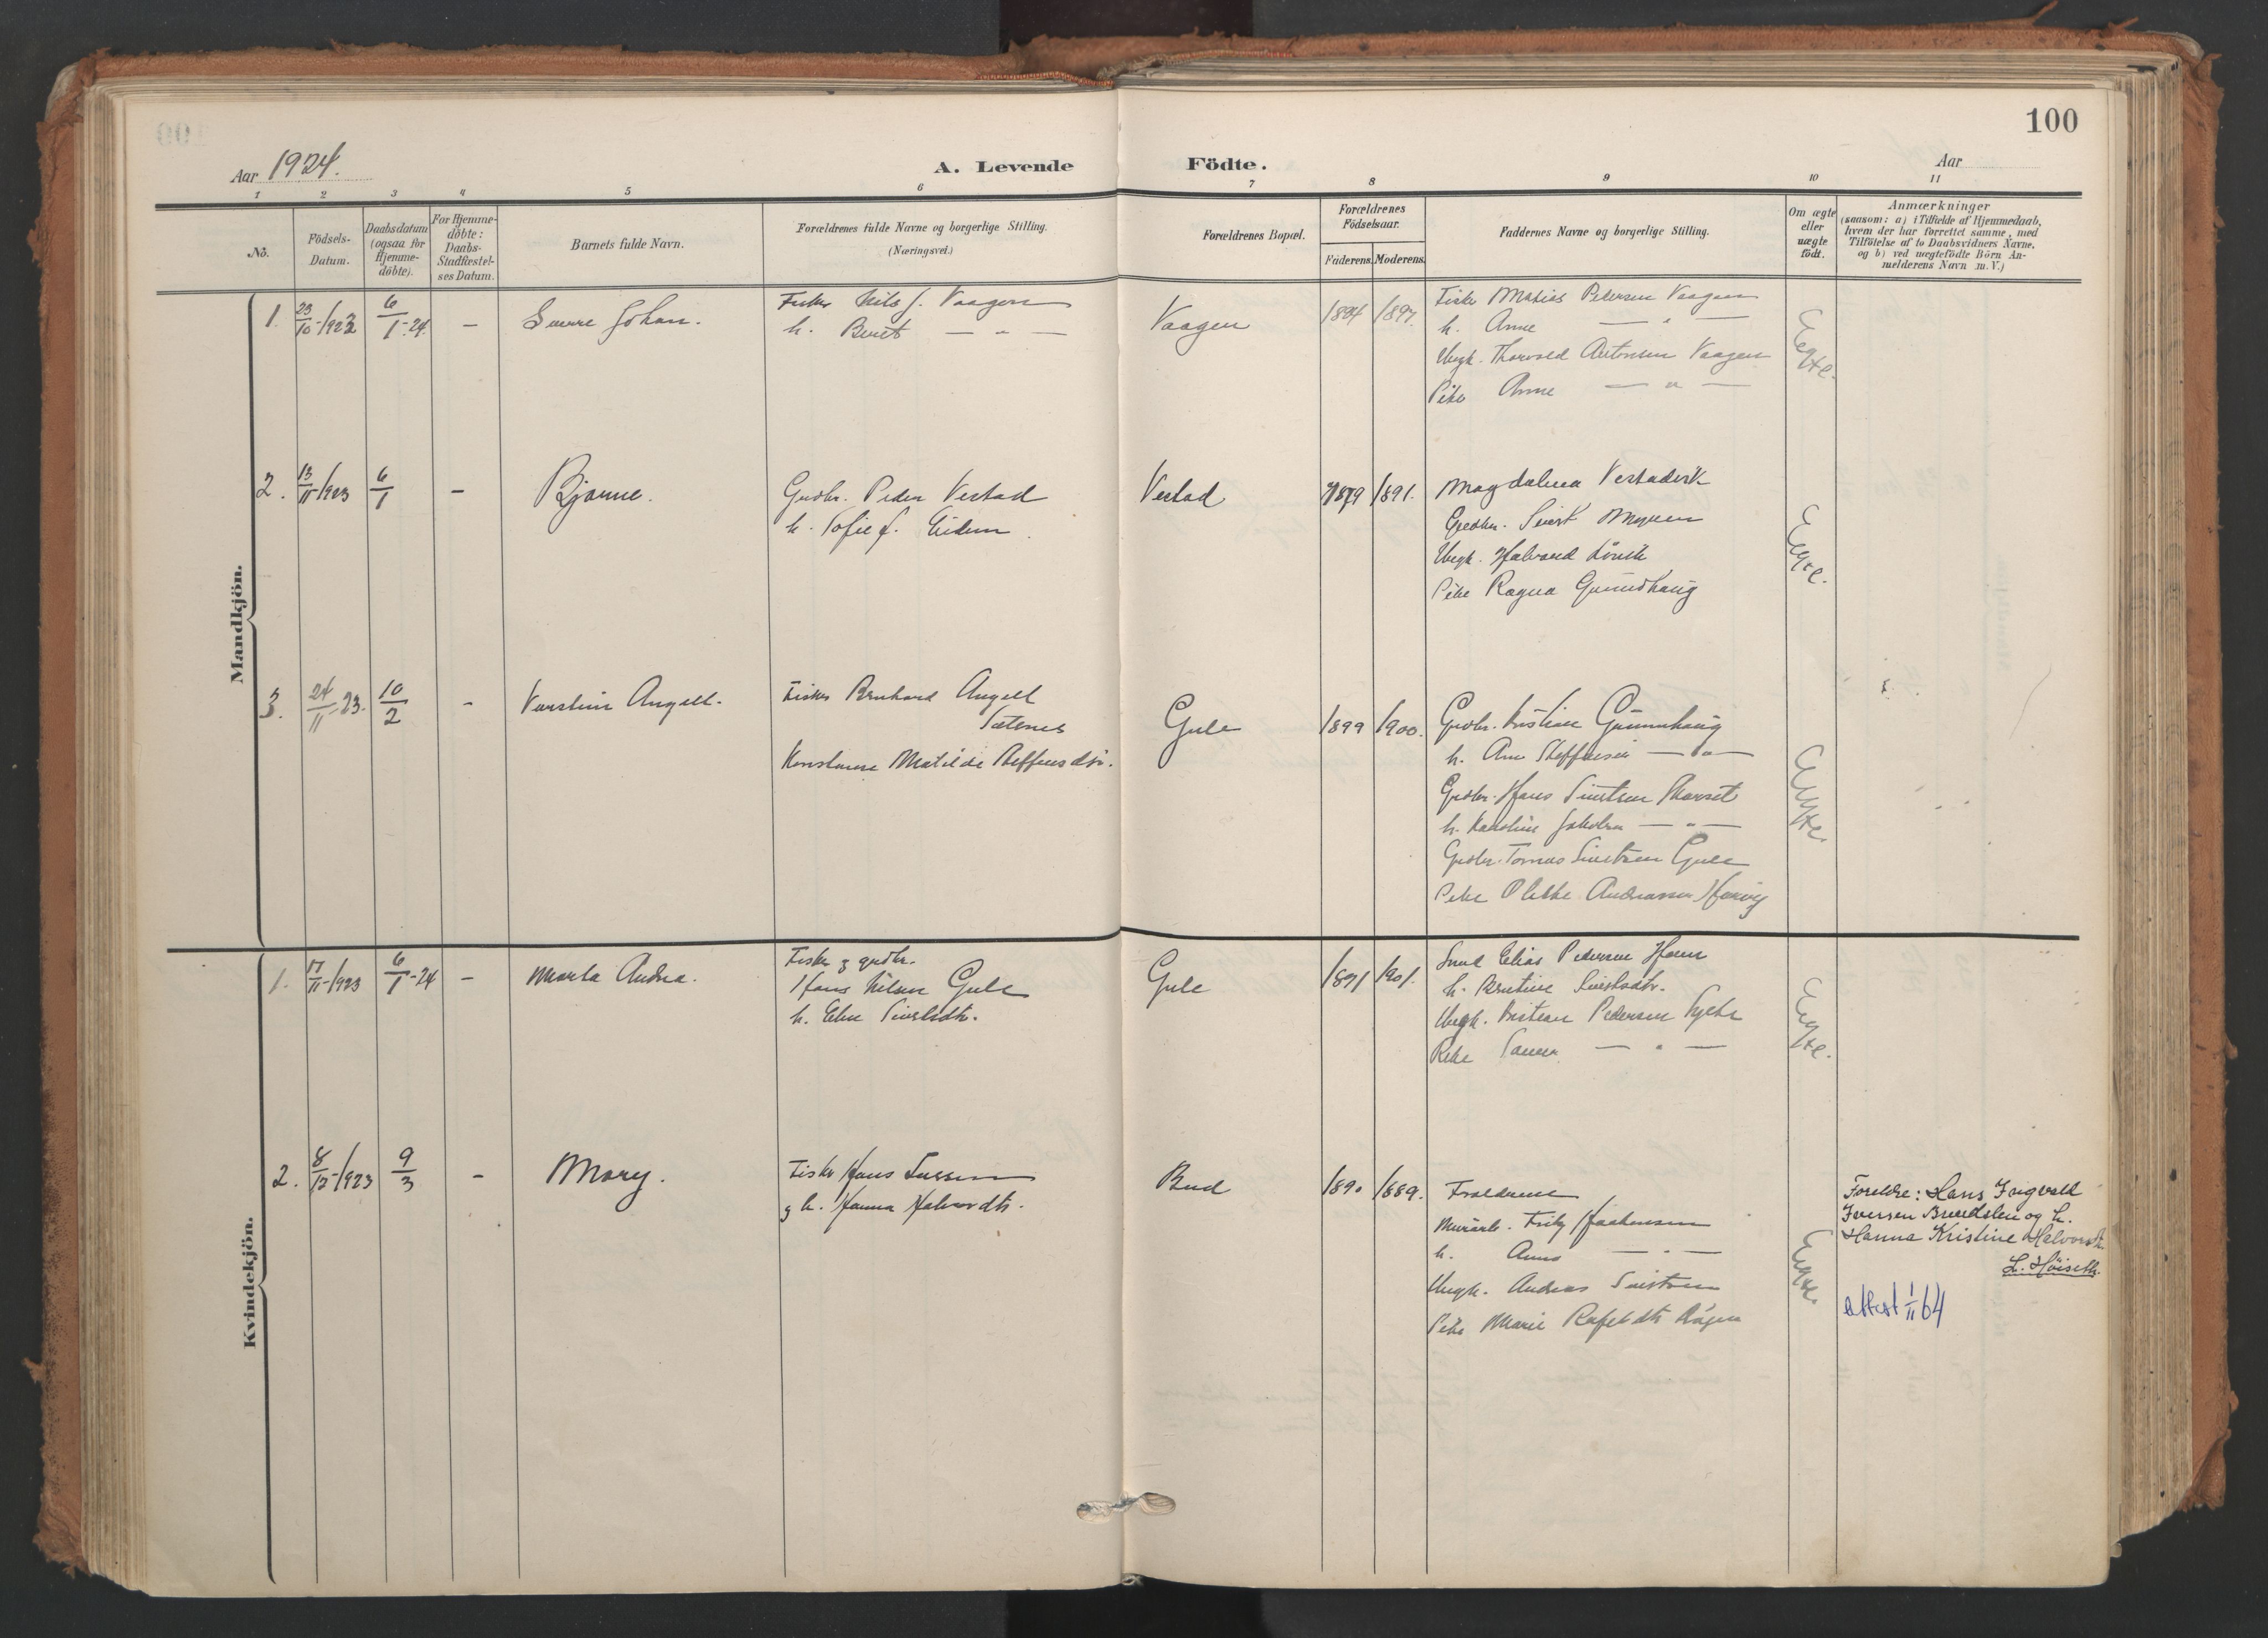 100
Aar 1924.
A. Levende Födte.
Aar
1 2 3 4 5 6 7 8 9 10 11
No.
Födsels-Datum.
Daabsdatum (ogsaa for Hjemme-döbte).
For Hjemme-döbte: Daabs-Stadfæstel-ses Datum.
Barnets fulde Navn.
Forældrenes fulde Navne og borgerlige Stilling.
(Næringsvei.)
Forældrenes Bopæl.
Forældrenes Födselsaar.
Faderens. Moderens.
Faddernes Navne og borgerlige Stilling.
Om ægte eller uægte födt.
Anmærkninger
(saasom: a) i Tilfælde af Hjemmedaab,
hvem der har forrettet samme, med
Tilföielse af to Daabsvidners Navne,
og b) ved uægtefödte Börn An-
melderens Navn m. V.)
Mandkjön.
1. 23/10-1923 6/1-24. – Sverre Johan.
Fisker Nils J. Vaagen
h. Beret — " —
Vaagen 1894 1897.
Fisker Matias Pedersen Vaagen
h. Anne — " —
Ungk. Thorvald Antonsen Vaagen
Pike Anne — " —
Ægte.
2. 13/11-1923 6/1 – Bjarne.
Grdbr. Peder Vestad
h. Sofie f. Eidem
Vestad 1879 1891.
Magdalena Vestadvik
Grdbr. Sivert Myren
Ungk. Halvard
Pike Ragna Gunnhaug
Ægte.
3. 24/11-23. 10/2 - Angell.
Fisker Bernhard Angell
Sætenes
Matilde Steffensdtr.
Gule 1899 1900.
Grdbr. Kristian Gunnhaug
h. Ane Steffensen — " —
Grdbr. Hans Sivertsen
h. Karoline Jakobsen — " —
Grdbr. Tomas Sivertsen Gule
Pike Andreassen
Ægte.
Kvindekjön.
1. 17/11-1923 6/1-24 – Marta Andrea.
Fisker g grdbr.
Hans Nilsen Gule
h. Elen Sivertsdtr.
Gule 1871 1901.
Elias Pedersen
h. Berntine Sivertsdtr.
Ungk. Kristian Pedersen
Pike — " —
Ægte.
2. 8/12-1923 9/3 - Mary.
Fisker Hans Iversen
g h. Hanna Halvordtr.
Bud 1890 1889.
Forældrene
Murarb. Fritz Haakensen
h. Anna — " —
Ungk. Andreas Sivertsen
Pike Marie
Ægte.
Foreldre: Hans Ingvald
Iversen Brendslen og h.
Hanna Kristine Halvorsdtr.
L. Høiseth.
attest 1/11 64